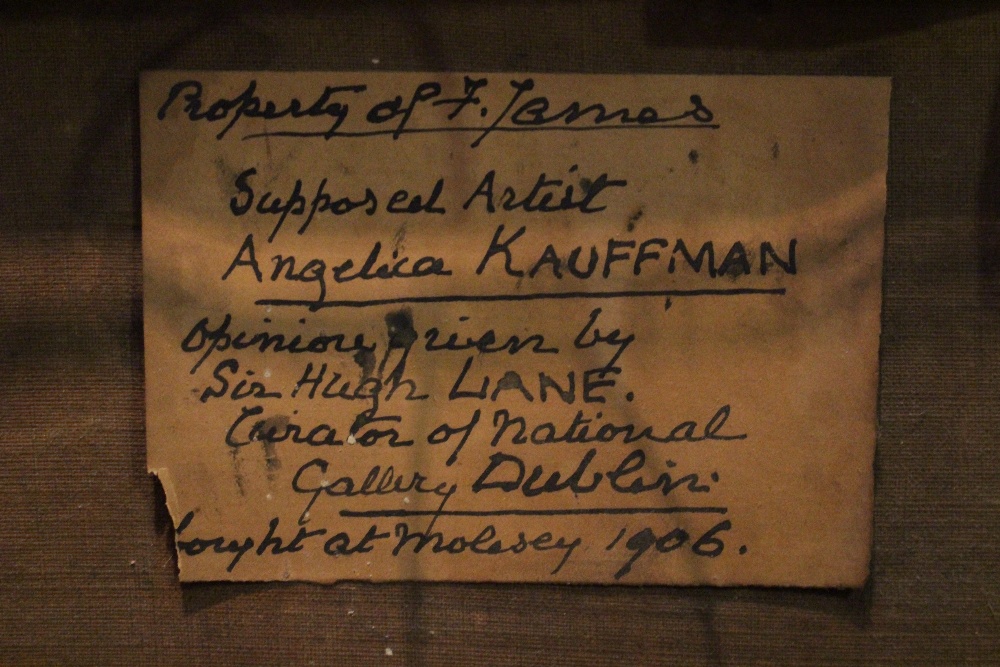 Property of F. James
Supposed Artist
Angelica KAUFFMAN
opinion given by
Sir Hugh LANE.
Curator of National
Gallery Dublin.
bought at Molesey 1906.